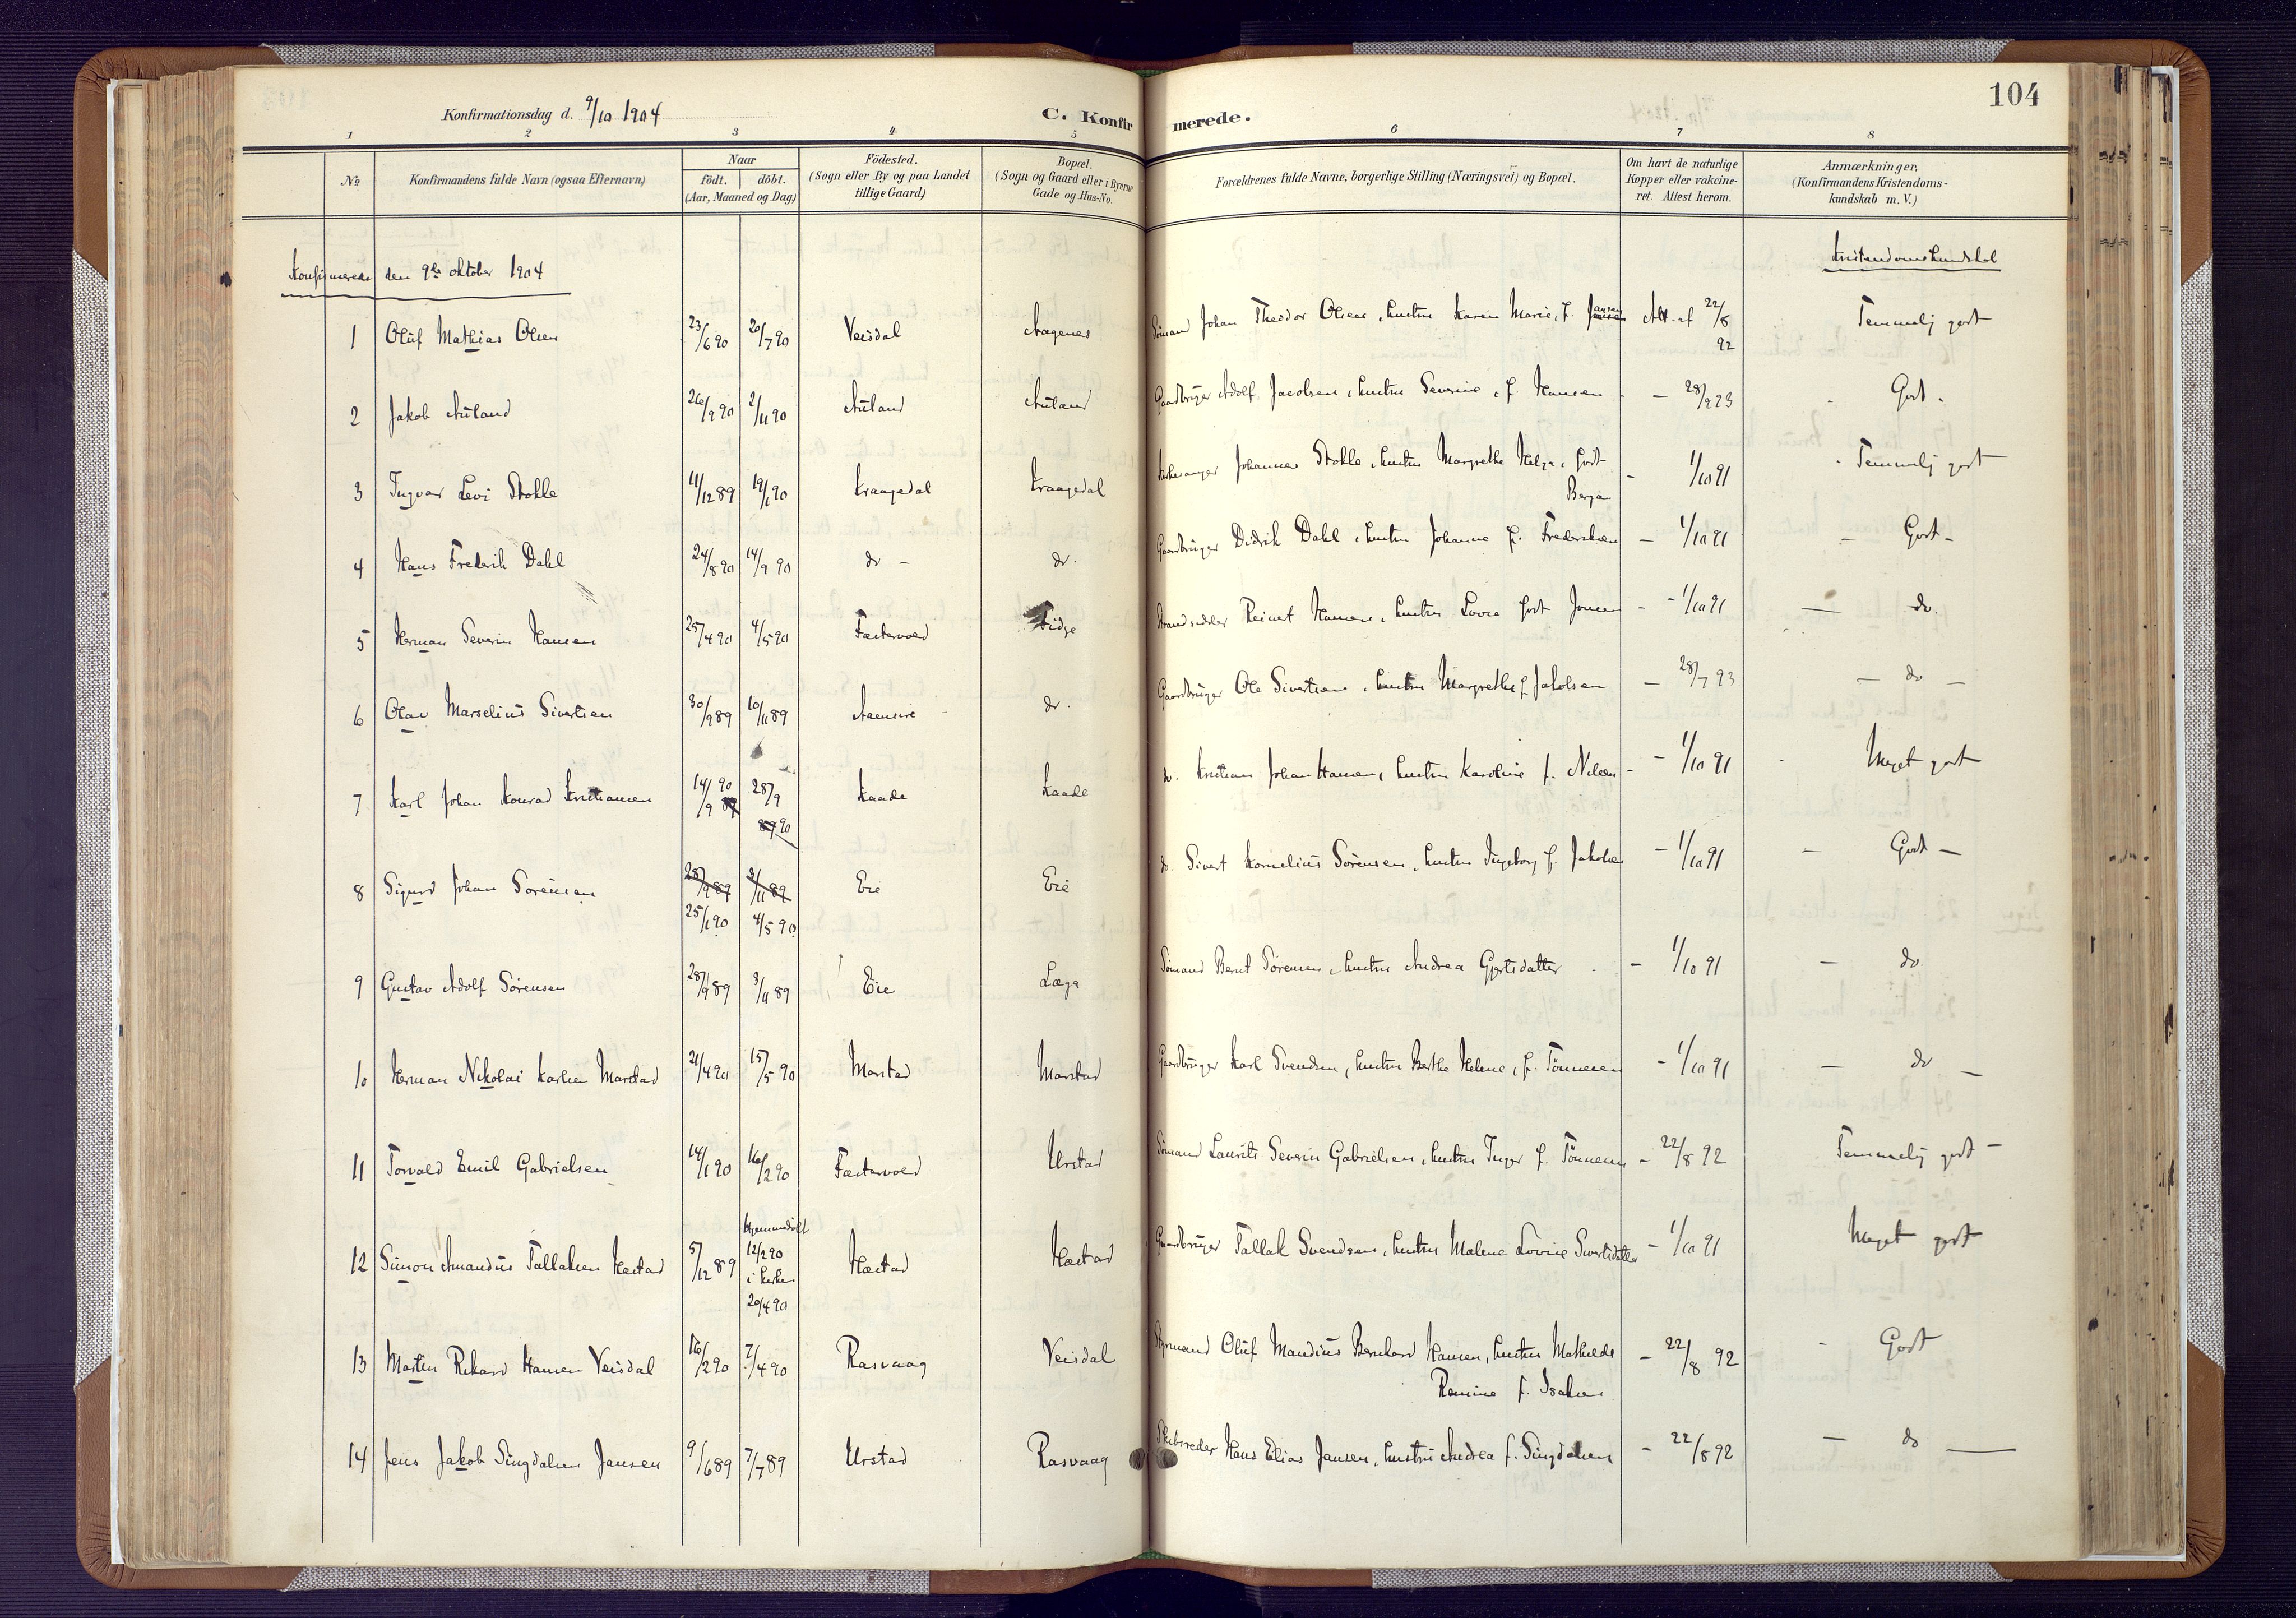 104
Konfirmationsdag d. 9/10 1904
C. Konfirmerede.
1 2 3 4 5 6 7 8
No
Konfirmandens fulde Navn (ogsaa Efternavn)
Naar
født. døbt.
(Aar, Maaned og Dag)
Fødested.
(Sogn eller By og paa Landet
tillige Gaard)
Bopæl.
(Sogn og Gaard eller i Byerne
Gade og Hus-No.
Forældrenes fulde Navne, borgerlige Stilling (Næringsvei) og Bopæl.
Om havt de naturlige
Kopper eller vakcine-
ret. Attest herom.
Anmærkninger,
(Konfirmandens Kristendoms-
kundskab m. V.)
Konfirmerede den 9de oktober 1904
Kristendomskundskab
1 Oluf Mathias Olsen 23/6 90 20/7 90 Veisdal Aagenes Sømand Johan Theodor Olsen, hustru Karen Marie, f. Jansen Att. af 22/8 92 Temmelig godt
2 Jakob Auland 26/9 90 2/11 90 Auland Auland Gaardbruger Adolf Jacobsen, hustru Severine, f. Hansen - 28/7 93 Godt -
3 Ingvar Levi Stokke 11/12 89 19/1 90 Kraagedal Kraagedal Kirkesanger Johannes Stokke, hustru Margrethe Helga, født
Bergan - 1/10 91 Temmelig godt
4 Hans Frederik Dahl 24/8 90 14/9 90 do - do. Gaardbruger Didrik Dahl, hustru Johanne f. Frederiksen - 1/10 91 - Godt -
5 Herman Severin Hansen 25/4 90 4/5 90 Fætervoed Fidje Strandsidder Reinert Hansen, hustru Lovise født Jonsen - 1/10 91 - do.
6 Olav Marselius Sivertsen 30/9 89 10/11 89 Aaensire do. Gaardbruger Ole Sivertsen, hustru Margrethe f. Jakobsen - 28/7 93 - do -
7 Karl Johan Konrad Kristiansen 14/9 90 89 28/9
89 90 Kaade Kaade do. Kristian Johan Hansen, hustru Karoline f. Nilsen - 1/10 91 Meget godt
8 Sigurd Johan Sørensen 28/9 89 3/11 89 Eie Eie do. Sivert Kornelius Sørensen, hustru Ingeborg f. Jakobsen - 1/10 91 - Godt -
25/1 90 4/5 90
9 Gustav Adolf Sørensen 28/9 89 3/11 89 Eie Læga Sømand Bernt Sørensen, hustru Andrea Gjertsdatter - 1/10 91 - do
10 Herman Nikolai Karlsen Marstad 21/4 90 15/5 90 Marstad Marstad Gaardbruger Karl Svendsen, hustru Berthe Helene, f. Tønnesen - 1/10 91 - do -
11 Torvald Emil Gabrielsen 14/1 90 16/2 90 Fætervoed Urstad Sømand Laurits Severin Gabrielsen, hustru Inger f. Tønnesen - 22/8 92 Temmelig godt -
Hjemmedøbt
12 Simon Amandus Tallaksen Hæstad 5/12 89 12/2 90
i kirken
20/4 90 Hæstad Hæstad Gaardbruger Tallak Svendsen, hustru Malene Lovise Sivertsdatter - 1/10 91 Meget godt
13 Martin Rikard Hansen Veisdal 16/2 90 7/4 90 Rasvaag Veisdal Styrmand Oluf Mandius Bernhard Hansen, hustru Mathilde
Ramine f. Isaksen - 22/8 92 - Godt
14 Jens Jakob Singdalsen Jansen 9/6 89 7/7 89 Urstad Rasvaag Skibsreder Hans Elias Jansen, hustru Andrea f. Singdalsen - 22/8 92 - do -